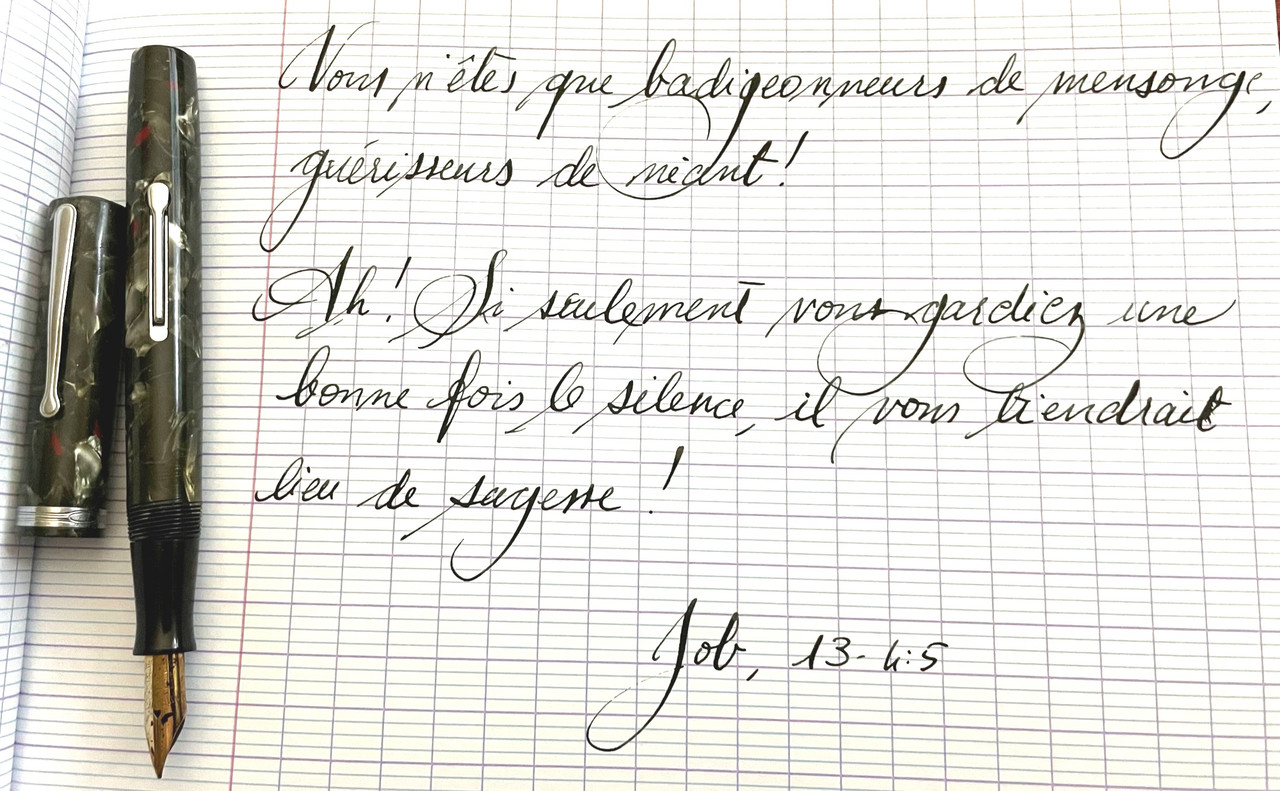 Vous n'êtes que badigeonneurs de mensonge,
guérisseurs de néant !
Ah ! Si seulement vous gardiez une
bonne fois le silence, il vous tiendrait
lieu de sagesse !
Job, 13-4:5